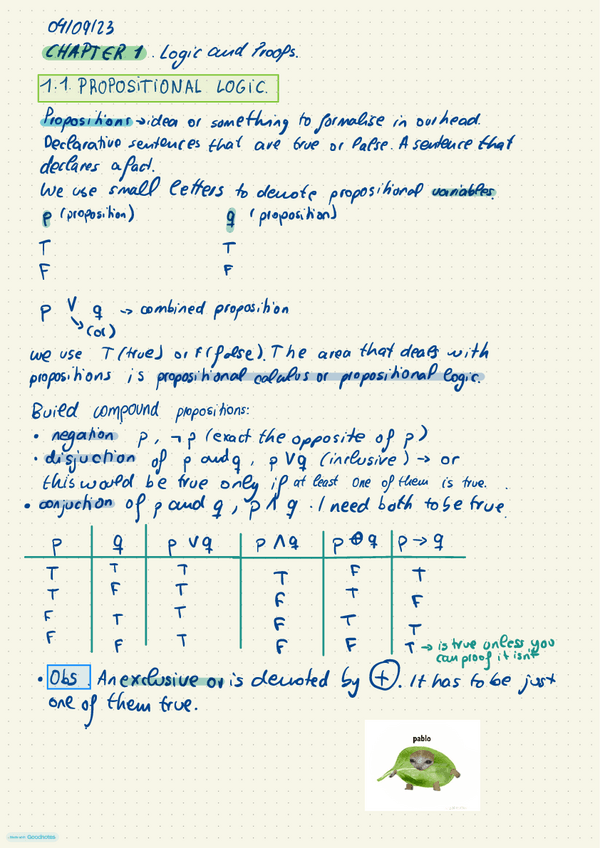 04/09/23
CHAPTER 1. Logic and Proofs.
1.1. PROPOSITIONAL LOGIC.
Propositions → idea or something to formalise in our head.
Declarative sentences that are true or false. A sentence that
declares a fact.
We use small letters to denote propositional variables.
p (proposition) q (proposition)
T T
F F
p V q → combined proposition
(or)
we use T (true) or F (false). The area that deals with
propositions is propositional calulus or propositional logic.
Build compound propositions:
• negation p, ¬p (exact the opposite of p)
• disjuction of p and q, p V q (inclusive) → or
this would be true only if at least one of them is true.
• conjuction of p and q, p Λ q. I need both to be true.
p q p V q p Λ q p ⊕ q p → q
T T T T F T
T F T F T F
F T T F T T
F F T F F T → is true unless you
can proof it isn't
• Obs. An exclusive or is denoted by ⊕. It has to be just
one of them true.
pablo
Made with Goodnotes